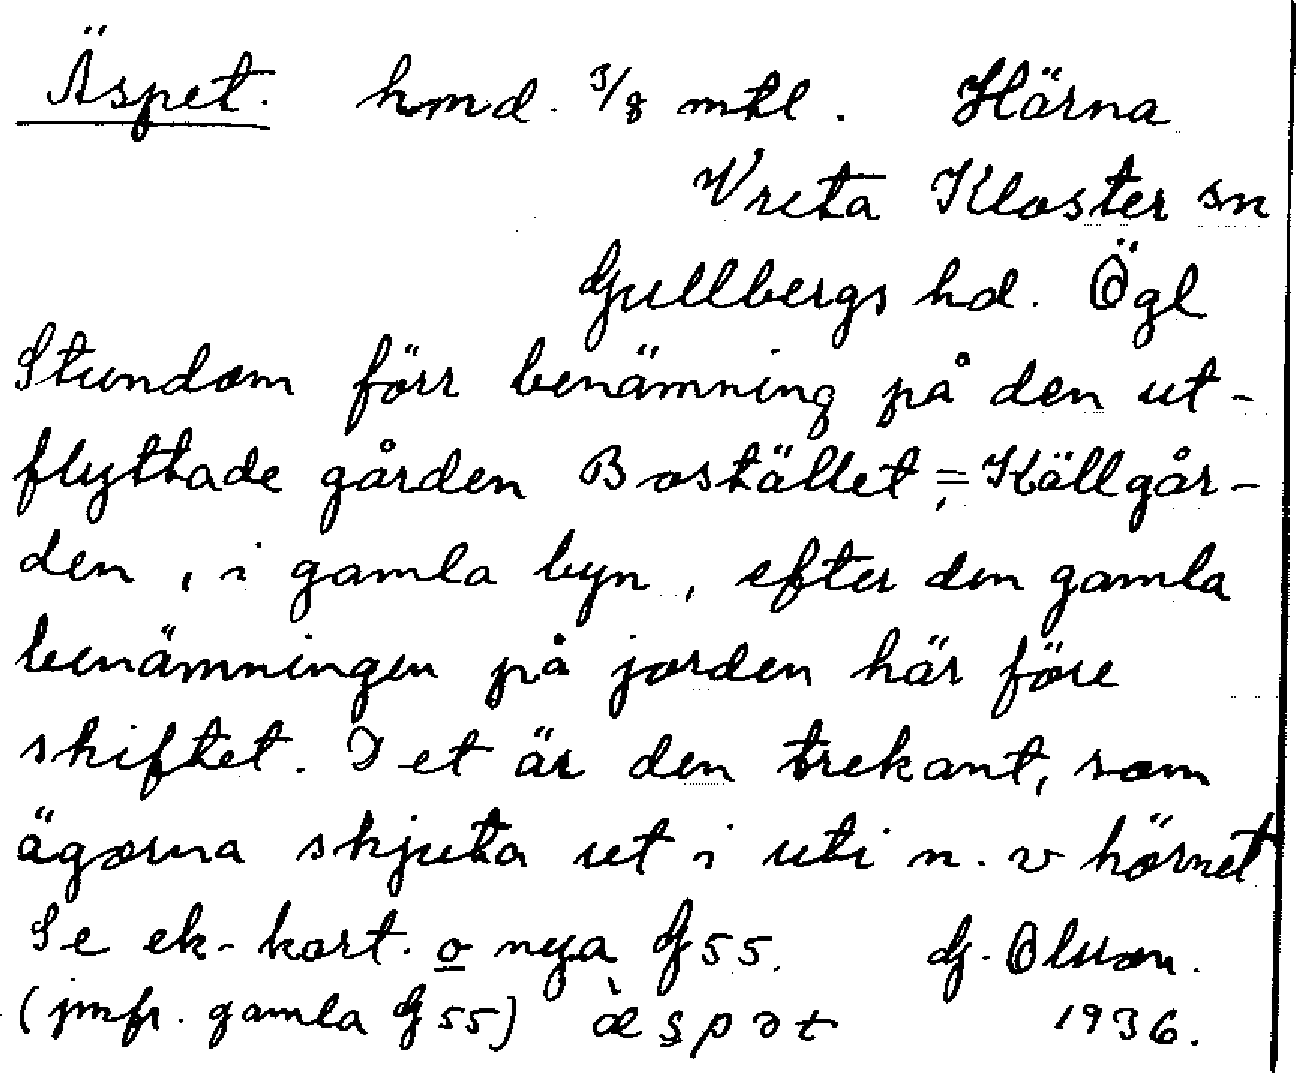 Äspet. hmd. 3/8 mtl. Härna
Vreta Kloster sn
Gullbergs hd. Ögl
Stundom förr benämning på den ut-
flyttade gården Bostället, = Källgår-
den, i gamla byn, efter den gamla
benämningen på jorden här före
skiftet. Det är den trekant, som
ägorna skjuta ut i uti n. v hörnet
Se ek-kart. o nya G 55. G. Olsson.
(jmfr. gamla G 55) 1936.